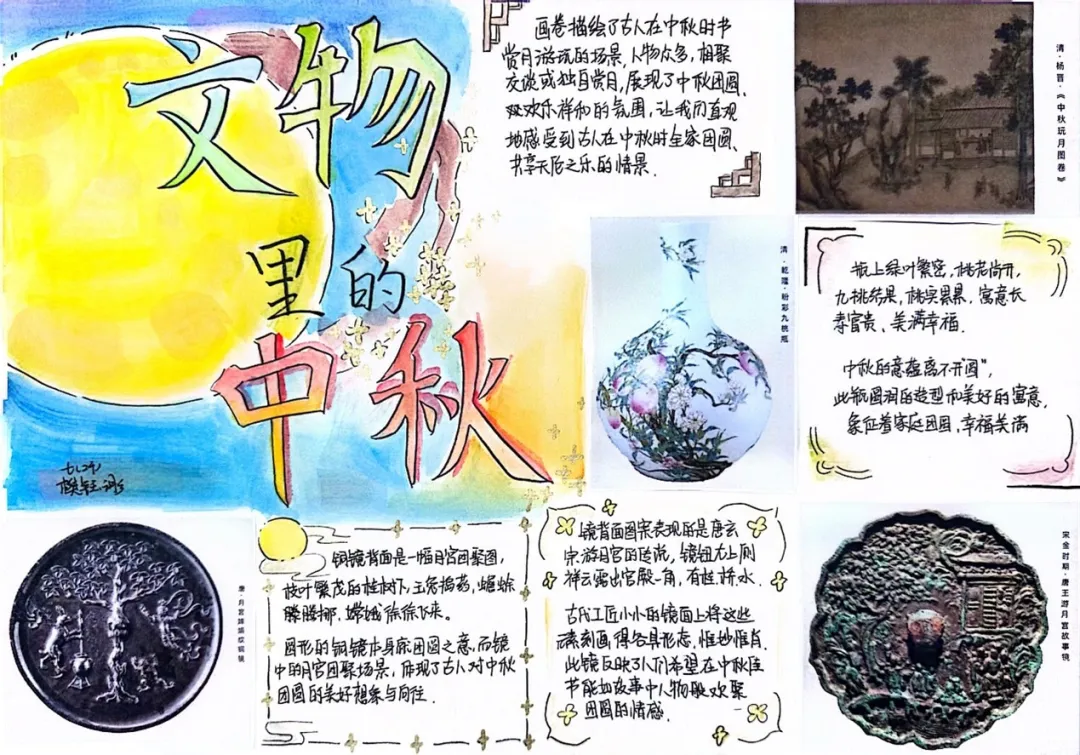 文物
里的
中秋
画卷描绘了古人在中秋时节
赏月游玩的场景,人物众多,相聚
交谈或独自赏月,展现了中秋团圆、
欢乐祥和的氛围,让我们直观
地感受到古人在中秋时全家团圆、
共享天伦之乐的情景.
清·杨晋·《中秋玩月图卷》
清·乾隆·粉彩九桃瓶
瓶上绿叶繁密,桃花尚开,
九桃结果,桃实累累,寓意长
寿富贵、美满幸福.
中秋的意蕴离不开“圆”,
此瓶圆润的造型和美好的寓意,
象征着家庭团圆,幸福美满
唐·月宫婵娟纹铜镜
铜镜背面是一幅月宫团聚图,
枝叶繁茂的桂树下,玉兔捣药,蟾蜍
腾挪,嫦娥徐徐飞来。
圆形的铜镜本身就团圆之意,而镜
中的月宫团聚场景,体现了古人对中秋
团圆的美好想象与向往.
镜背面图案表现的是唐玄
宗游月宫的传说,镜钮右上侧
祥云露出宫殿一角,有桂、桥、水.
古代工匠小小的镜面上将这些
刻画得各具形态,惟妙惟肖.
此镜反映了人们希望在中秋佳
节能如故事中人物般欢聚
团圆的情感.
宋金时期·唐王游月宫故事镜